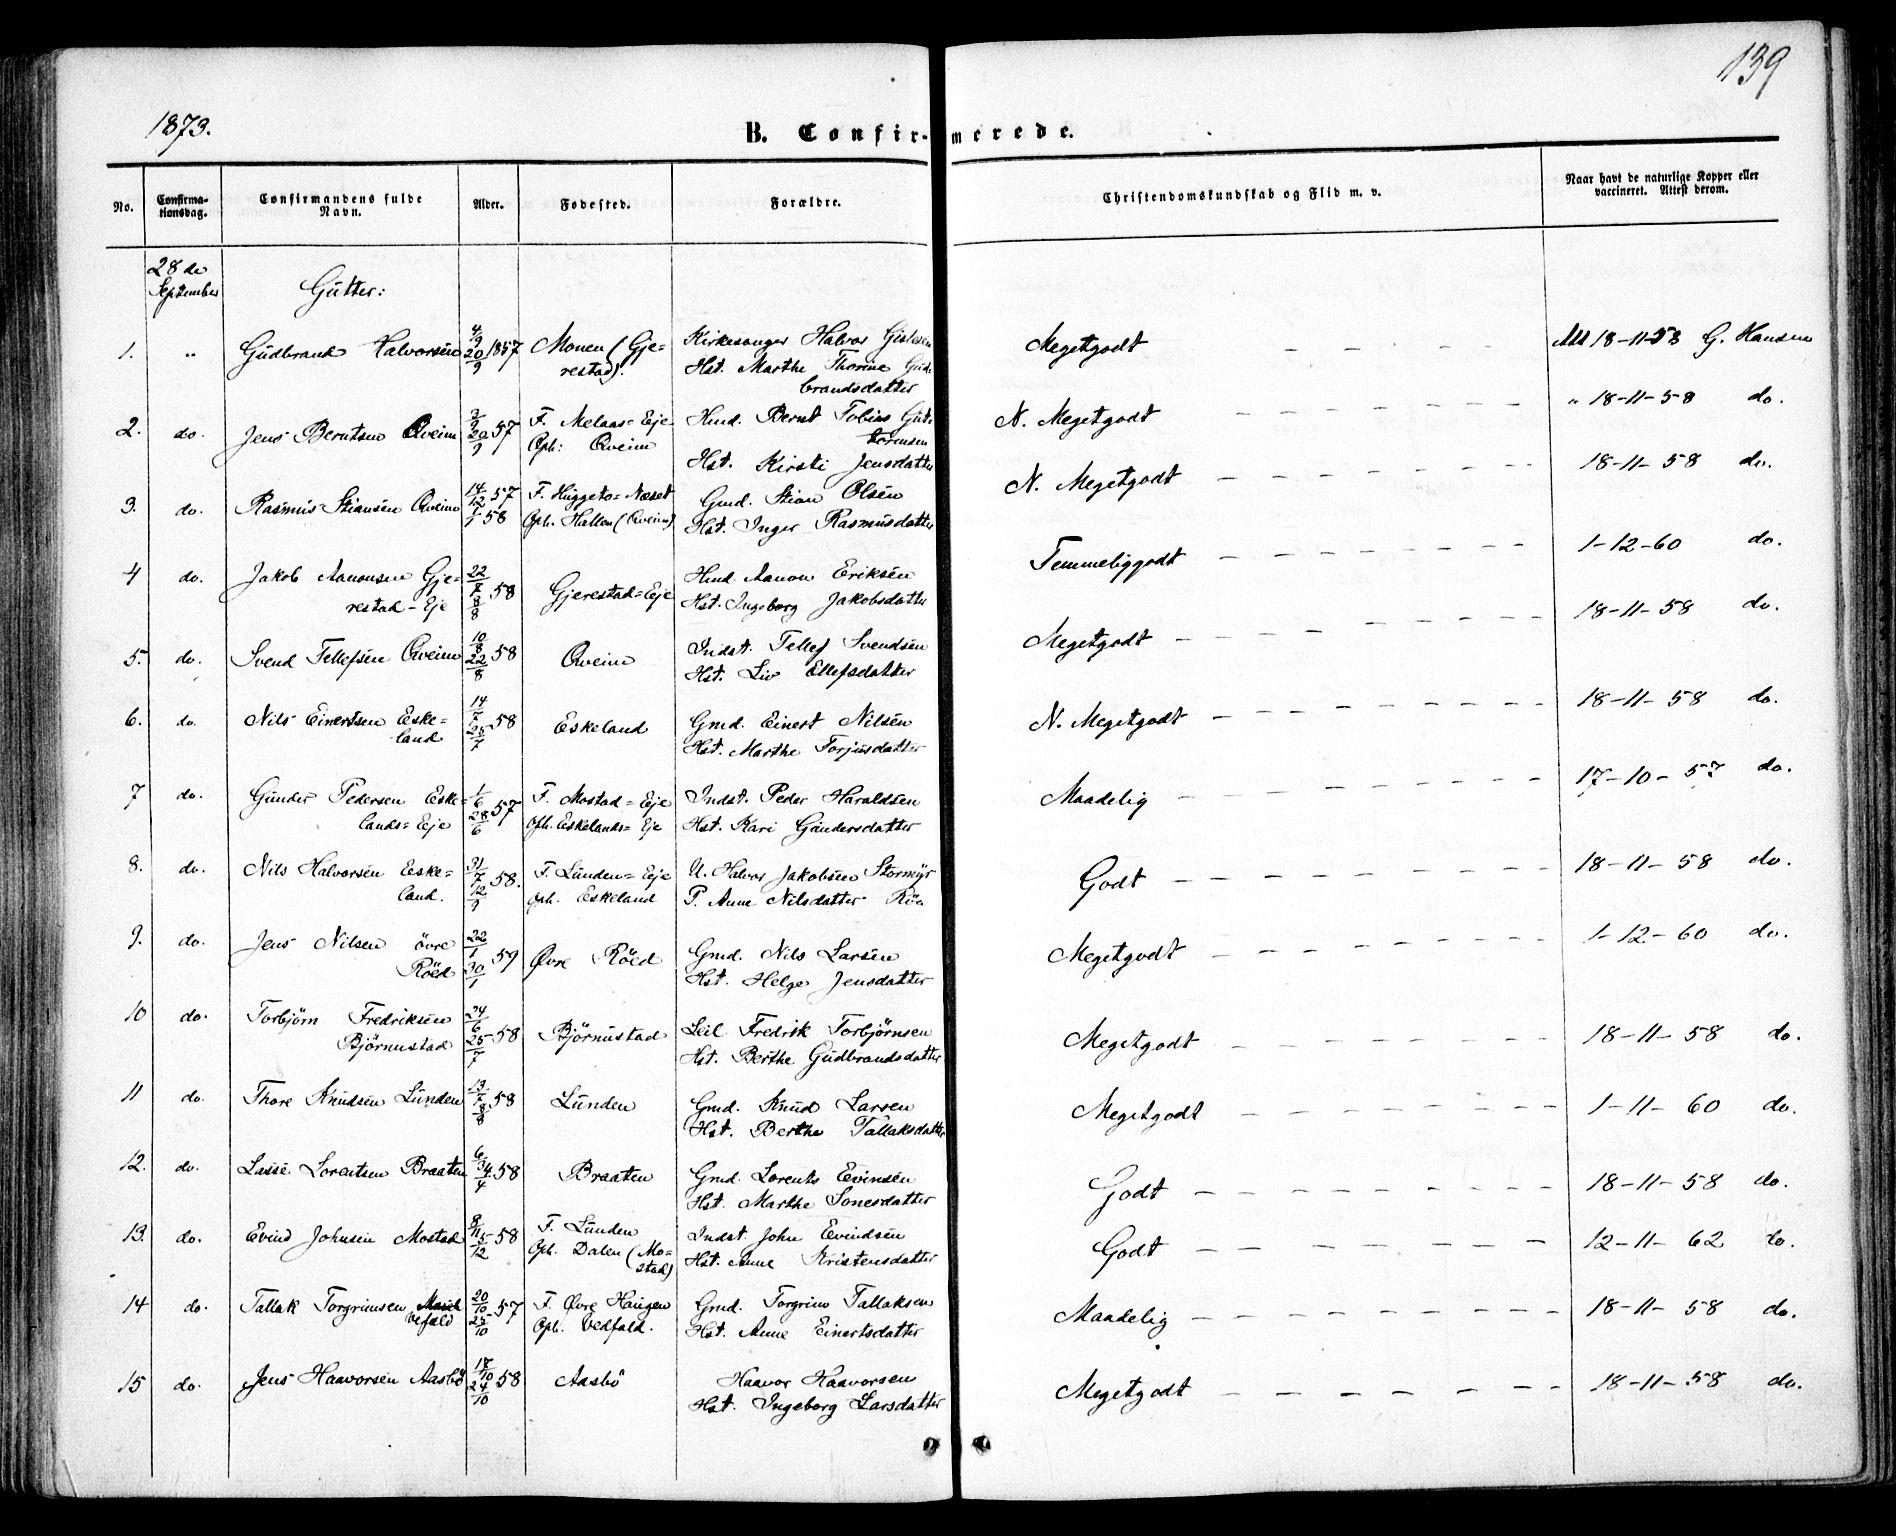 139
1873.
B. Confir- merede.
No.
Confirma-
tionsdag.
Confirmandens fulde
Navn.
Alder.
Fødested.
Forældre.
Christendomskundskab og Flid m. v.
Naar havt de naturlige Kopper eller
vaccineret. Attest derom.
28de
September
Gutter:
1. " Gudbrand Halvorsen 4/9 20/9 1857 Monen (Gje-
restad). Kirkesanger Halvor
Hst. Marthe Thorine Gud-
brandsdatter
Megetgodt Att 18-11-58 G. Hansen
2. do. Jens Berntsen Qveim 3/9 20/9 57 F. Melaas-Eje
Oph: Qveim
Hmd. Bernt Tobias Gut-
tormsen
Hst. Kirsti Jensdatter
N. Megetgodt " 18-11-58 do.
3. do. Rasmus Stiansen Qveim 14/12 57 1/1 58 F. Huggeto-Næset
Oph. Hallen (Qveim)
Gmd. Stian Olsen
Hst. Inger Rasmusdatter
N. Megetgodt 18-11-58 do.
4 do. Jakob Aanonsen Gje-
restad-Eje 22/7 8/8 58 Gjerestad-Eje
Hmd. Aanon Eriksen
Hst. Ingeborg Jakobsdatter
Temmeliggodt 1-12-60 do.
5. do. Svend Tellefsen Qveim 10/8 22/8 58 Qveim
Indst. Tellef Svendsen
Hst. Liv Ellefsdatter
Megetgodt 18-11-58 do.
6. do. Nils Einertsen Eske-
land 14/7 25/7 58 Eskeland
Gmd. Einert Nilsen
Hst. Marthe Torjusdatter
N. Megetgodt 18-11-58 do.
7 do. Gunder Pedersen Eske-
lands-Eje 1/6 28/6 57 F. Mostad-Eje
Oph. Eskelands-Eje
Indst. Peder Haraldsen
Hst. Kari Gundersdatter
Maadelig 17-10-57 do.
8. do. Nils Halvorsen Eske-
land. 31/7 12/9 58. F. Lunden-Eje
Oph. Eskeland
U. Halvor Jakobsen Stormyr
P. Anne Nilsdatter
Godt 18-11-58 do.
9. do. Jens Nilsen övre
Röed 22/1 30/1 59 Øvre Röed
Gmd. Nils Larsen
Hst. Helge Jensdatter
Megetgodt 1-12-60 do.
10 do. Torbjörn Fredriksen
Björnustad 24/6 25/7 58 Björnustad
Leil. Fredrik Torbjörnsen
Hst. Berthe Gudbrandsdatter
Megetgodt 18-11-58 do.
11 do. Thore Knudsen Lunden 13/7 8/8 58 Lunden
Gmd. Knud Larsen
Hst. Berthe Tallaksdatter
Megetgodt 1-11-60 do.
12. do. Lasse Lorentsen Braaten 6/3 4/4 58 Braaten
Gmd. Lorents Evinsen
Hst. Marthe Sonesdatter
Godt 18-11-58 do.
13. do. Evind Johnsen Mostad 8/11 5/12 58 F. Lunden
Oph. Dalen (Mo-
stad)
Indst. John Evindsen
Hst. Anne Kristensdatter
Godt 12-11-62 do.
14 do. Tallak Torgrimsen
Vefald 20/10 25/10 57 F. Øvre Haugen
Oph. Vedfald.
Gmd. Torgrim Tallaksen
Hst. Anne Einertsdatter
Maadelig 18-11-58 do.
15 do. Jens Haavorsen Aasbö 17/10 24/10 58 Aasbö
Haavor Haavorsen
Hst. Ingeborg Larsdatter
Megetgodt 18-11-58 do.